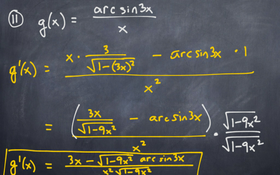 ⑪ g(x) = arcsin3x / x
g'(x) = (x · 3/√(1-(3x)²) - arcsin3x · 1) / x²
= (3x/√(1-9x²) - arcsin3x) / x² · √(1-9x²)/√(1-9x²)
g'(x) = (3x - √(1-9x²) arcsin3x) / (x² √(1-9x²))